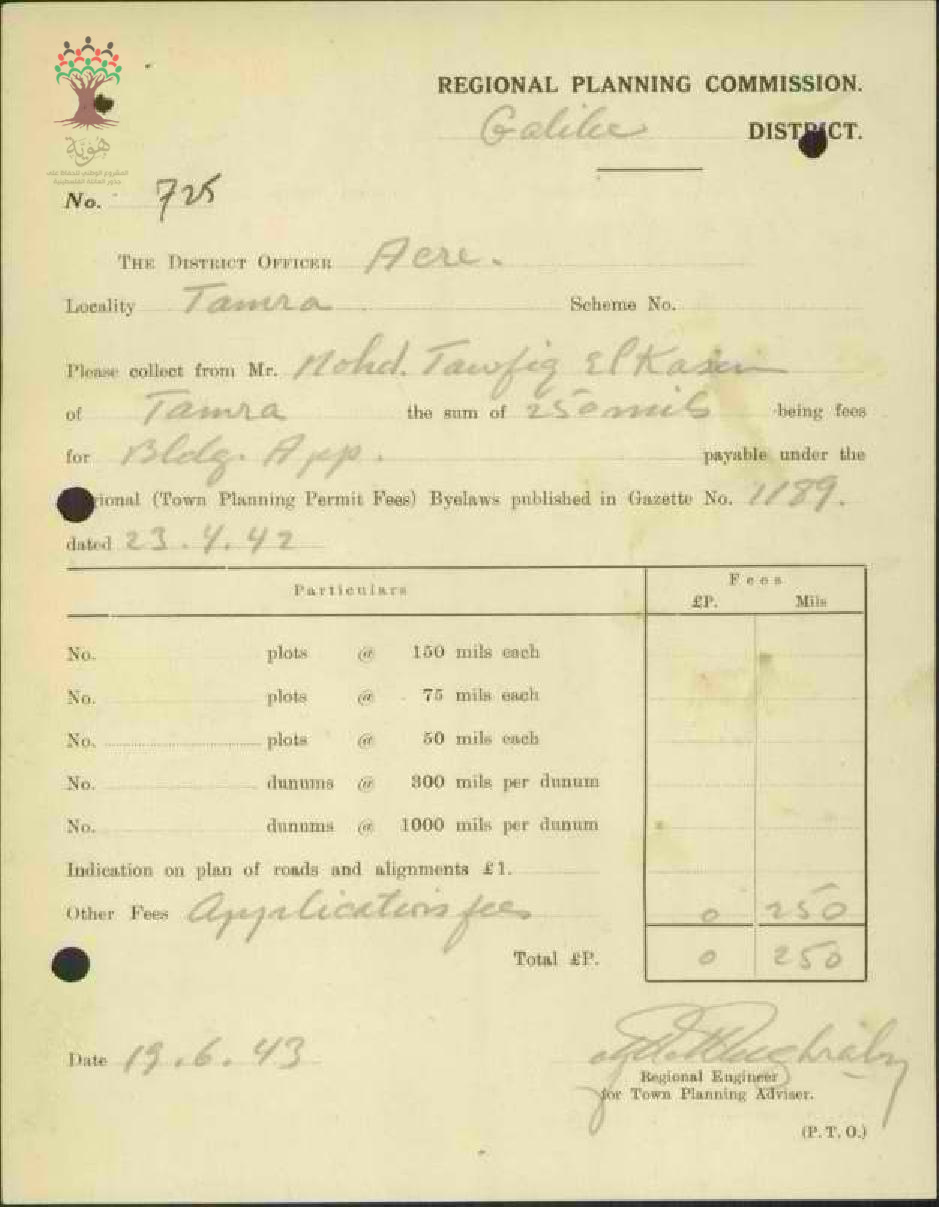 REGIONAL PLANNING COMMISSION.
Galilee DISTRICT.
هوية
المشروع الوطني للحفاظ على
جذور العائلة الفلسطينية
No. 725
THE DISTRICT OFFICER Acre.
Locality Tamra Scheme No.
Please collect from Mr. Mohd. Tawfiq El Kasem
of Tamra the sum of 250 mils being fees
for Bldg. App. payable under the
ional (Town Planning Permit Fees) Byelaws published in Gazette No. 1189.
dated 23.4.42
Particulars Fees
£P. Mils
No. plots @ 150 mils each
No. plots @ 75 mils each
No. plots @ 50 mils each
No. dunums @ 300 mils per dunum
No. dunums @ 1000 mils per dunum
Indication on plan of roads and alignments £1.
Other Fees Application fees 0 250
Total £P. 0 250
Date 19.6.43
Regional Engineer
for Town Planning Adviser.
(P. T. O.)